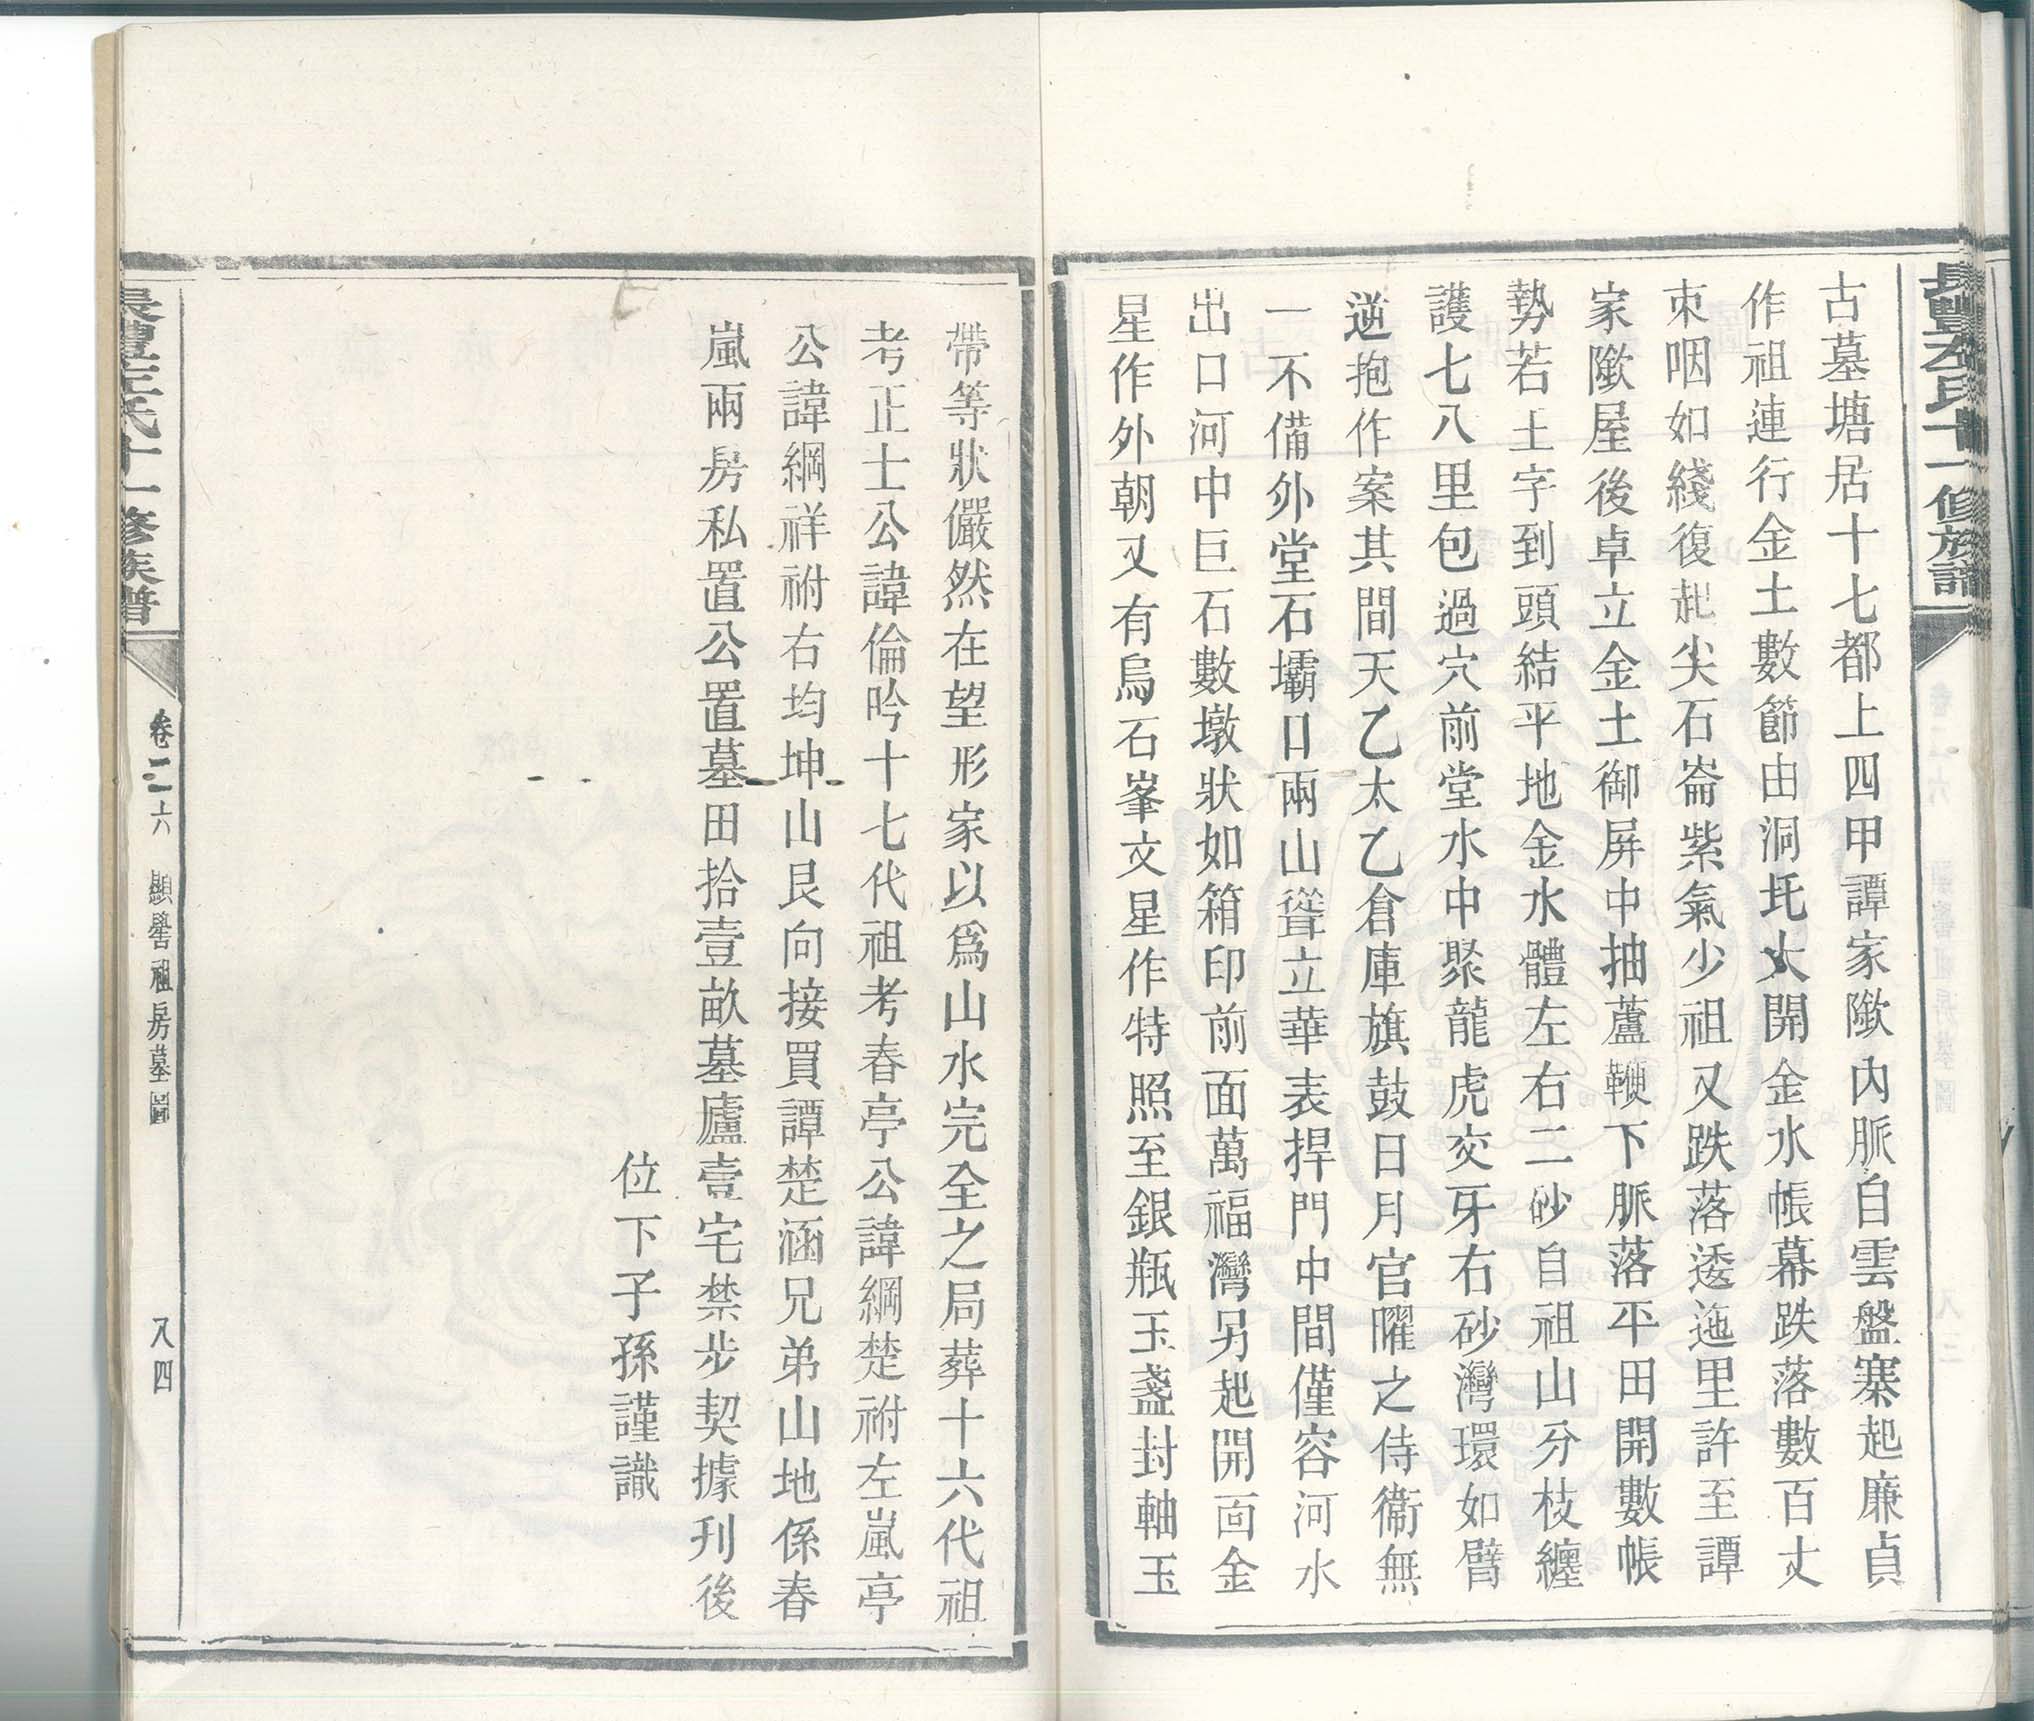 長豐左氏十一修族譜
古墓塘居十七都上四甲譚家隞內脈自雲盤寨起廉貞
作祖連行金土數節由洞圫大開金水帳幕跌落數百丈
束咽如綫復起尖石崙紫氣少祖又跌落逶迤里許至譚
家隞屋後卓立金土御屏中抽蘆鞭下脈落平田開數帳
勢若土字到頭結平地金水體左右二砂自祖山分枝纏
護七八里包過穴前堂水中聚龍虎交牙右砂灣環如臂
逆抱作案其間天乙太乙倉庫旗鼓日月官曜之侍衞無
一不備外堂石壩口兩山聳立華表捍門中間僅容河水
出口河中巨石數墩狀如箱印前面萬福灣另起開面金
星作外朝又有烏石峯文星作特照至銀瓶玉盞封軸玉
帶等狀儼然在望形家以爲山水完全之局葬十六代祖
考正士公諱倫吟十七代祖考春亭公諱綱楚祔左嵐亭
公諱綱祥祔右均坤山艮向接買譚楚涵兄弟山地係春
嵐兩房私置公置墓田拾壹畝墓廬壹宅禁步契據刋後
位下子孫謹識
長豐左氏十一修族譜
卷二六
顯譽祖房墓圖
八四